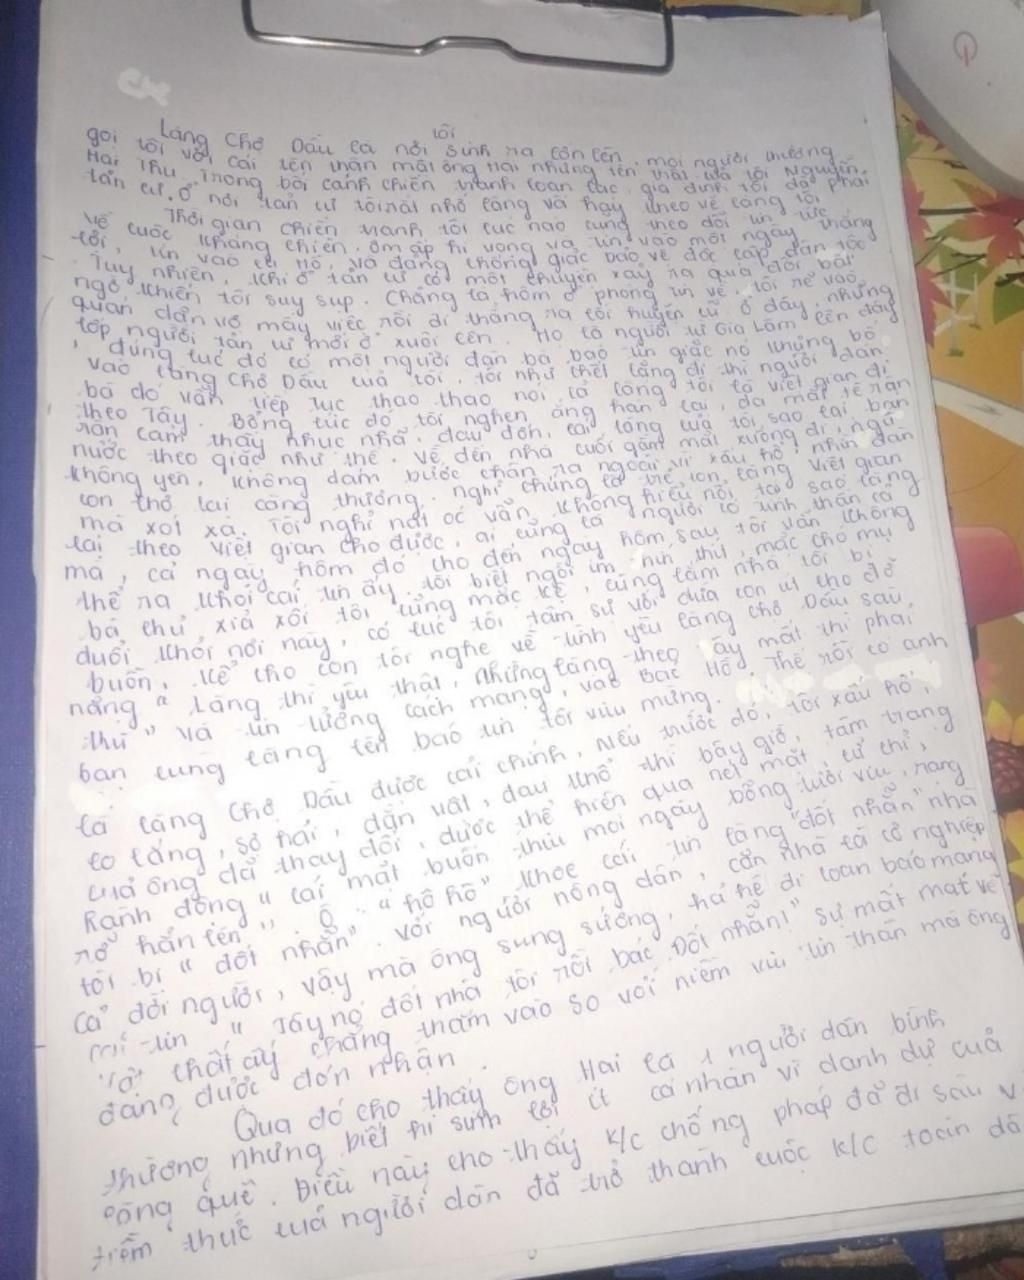 Làng chợ Dầu là nơi tôi sinh ra lớn lên, mọi người thường
gọi tôi với cái tên thân mật ông Hai nhưng tên thật của tôi Nguyễn
Hai Thu. Trong bối cảnh chiến tranh loạn lạc, gia đình tôi đã phải
tản cư. Ở nơi tản cư tôi rất nhớ làng và hay theo về làng tôi
Thời gian chiến tranh tôi lúc nào cũng theo dõi tin tức
về cuộc kháng chiến. ôm ấp hi vọng và tin vào một ngày thắng
lợi, tin vào cụ Hồ, và đảng chống giặc bảo vệ độc lập dân tộc
Tuy nhiên, khi ở tản cư có một chuyện xảy ra quá đỗi bất
ngờ khiến tôi suy sụp. Chẳng là hôm ở phòng tin về, tôi rẽ vào
quán dặn vợ mấy việc rồi đi thẳng ra lối huyện cũ ở đây, những
tốp người tản cư mới ở xuôi lên. Họ là người từ Gia Lâm lên đây
, đúng lúc đó có một người đàn bà báo tin giặc nó khủng bố
vào làng chợ Dầu của tôi. tôi như chết lặng đi thì người đàn
bà đó vẫn tiếp tục thao thao nói cả làng tôi là việt gian đi
theo Tây. Bỗng lúc đó tôi nghẹn ắng hẳn lại, da mặt tê rân
rân cảm thấy nhục nhã, đau đớn, cái làng của tôi sao lại bán
nước theo giặc như thế. Về đến nhà cuối gằm mặt xuống đi, ngủ
không yên, không dám bước chân ra ngoài vì xấu hổ, nhìn đàn
con thơ lại càng thương. nghĩ chúng là trẻ con làng việt gian
mà xót xa. Tôi nghĩ nát óc vẫn không hiểu nổi tại sao làng
lại theo việt gian cho được, ai cũng là người có tinh thần cả
mà, cả ngày hôm đó cho đến ngày hôm sau, tôi vẫn không
thể ra khỏi cái tin ấy. tôi biết ngồi im nín thít, mặc cho mụ
bà chủ xỉa xói tôi cũng mặc kệ, cũng lắm nhà tôi bị
đuổi khỏi nơi này, có lúc tôi tâm sự với đứa con út cho đỡ
buồn, kể cho con tôi nghe về tình yêu làng chợ Dầu sâu
nặng " Làng thì yêu thật, nhưng làng theo Tây mất thì phải
thù" và tin tưởng cách mạng, vào Bác Hồ. Thế rồi có anh
bạn cùng làng lên báo tin tôi vui mừng.
là làng chợ Dầu được cải chính, Nếu trước đó, tôi xấu hổ,
lo lắng, sợ hãi, dằn vặt, đau khổ thì bây giờ, tâm trạng
của ông đã thay đổi, được thể hiện qua nét mặt, cử chỉ,
hành động " cái mặt buồn thỉu mọi ngày bỗng tươi vui, rạng
rỡ hẳn lên", Ô.. "hô hô" khoe cái tin làng "đốt nhẵn" nhà
tôi bị " đốt nhẵn". Với người nông dân, căn nhà là cơ nghiệp
cả đời người, vậy mà ông sung sướng, hả hê đi loan báo mang
cái tin " Tây nó đốt nhà tôi rồi bác. Đốt nhẵn!" sự mất mát về
vật chất ấy chẳng thấm vào so với niềm vui tin thần mà ông
đang được đón nhận.
Qua đó cho thấy ông Hai là 1 người dân bình
thường nhưng biết hi sinh lợi ít cá nhân vì danh dự của
làng quê. Điều này cho thấy k/c chống pháp đã đi sâu v
tiềm thức của người dân đã trở thành cuộc k/c toàn dâ